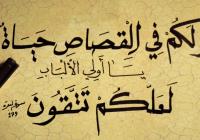 ولكم في القصاص حياة
يا أولي الألباب
لعلكم تتقون